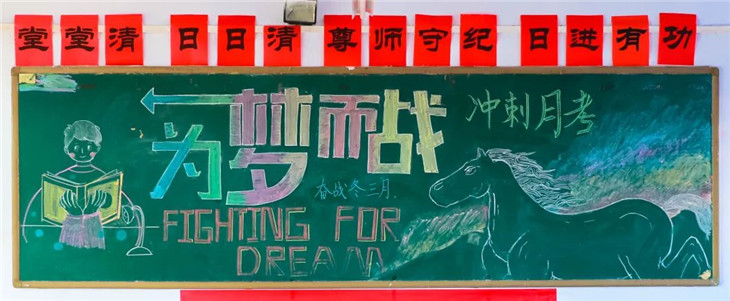 堂堂清 日日清 尊师守纪 日进有功
为梦而战
冲刺月考
奋战冬三月.
FIGHTING FOR
DREAM